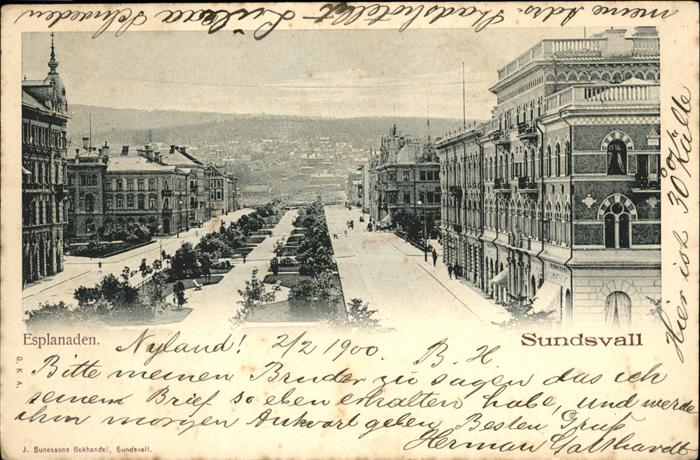 meine Adr. Stadshotellet Luleå Schweden
Esplanaden.
Sundsvall
G. K. A.
Nyland! 2/2 1900. B. H.
Bitte meinen Bruder zu sagen das ich
seinem Brief so eben erhalten habe, und werde
ihm morgen Antwort geben Besten Gruß
Herman
J. Sunessons Bokhandel, Sundsvall.
Hier ist 30 Kälte